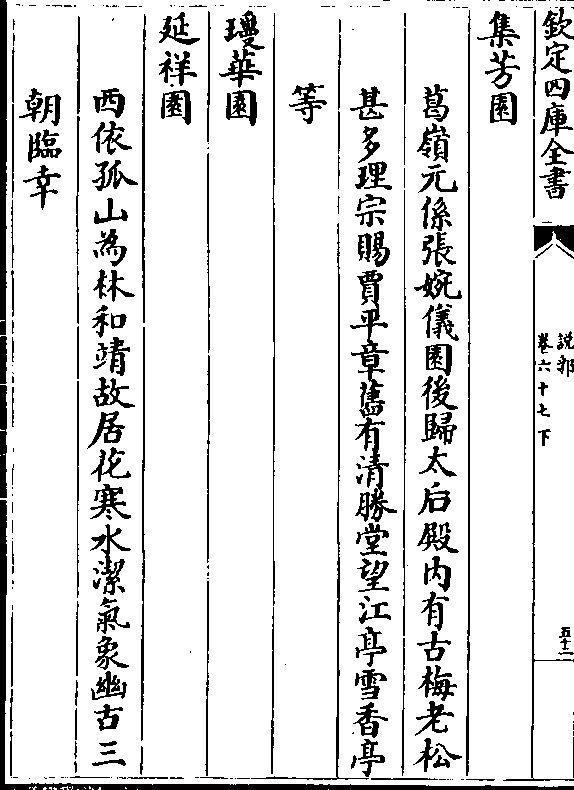 欽定四庫全書
說郛
卷六十七下
五十二
集芳園
葛嶺元係張婉儀園後歸太后殿内有古梅老松
甚多理宗賜賈平章舊有清勝堂望江亭雪香亭
等
瓊華園
延祥園
西依孤山為林和靖故居花寒水潔氣象幽古三
朝臨幸